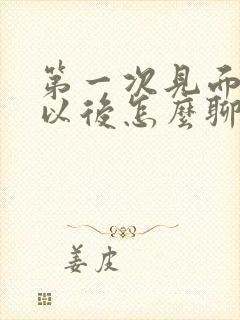 第一次見面
以後怎麼聊
姜皮